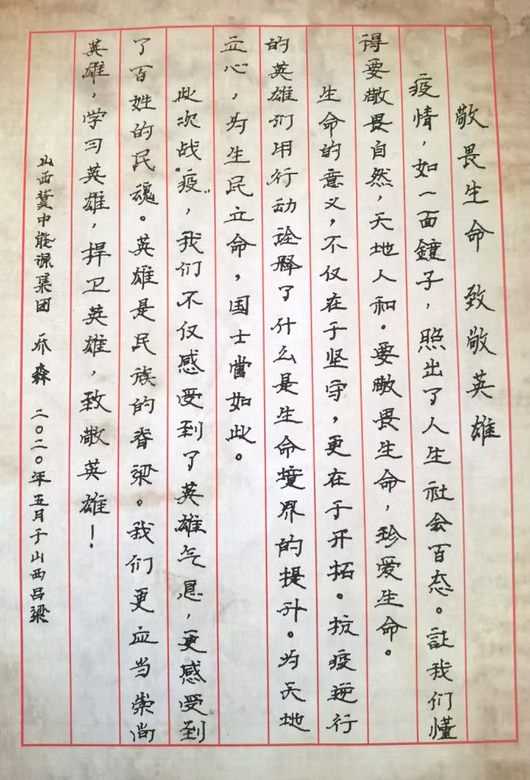 敬畏生命 致敬英雄
疫情，如一面鏡子，照出了人生社会百态。让我们懂
得要敬畏自然，天地人和。要敬畏生命，珍爱生命。
生命的意义，不仅在于坚守，更在于开拓。抗疫逆行
的英雄们用行动诠释了什么是生命境界的提升。为天地
立心，为生民立命，国士當如此。
此次战“疫”，我们不仅感受到了英雄气息，更感受到
了百姓的民魂。英雄是民族的脊梁。我们更应当崇尚
英雄，学习英雄，捍卫英雄，致敬英雄！
山西冀中能源集团 乔森 二〇二〇年五月于山西吕梁